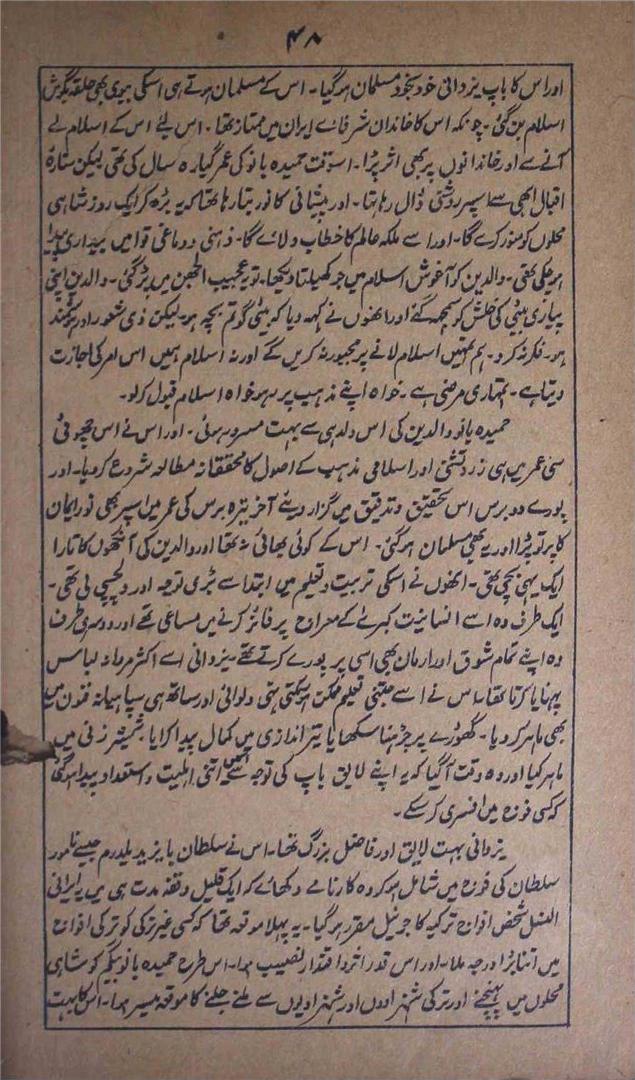 ۴۸
اور اس کا باپ یزدانی خود بخود مسلمان ہوگیا۔ اس کے مسلمان ہوتے ہی اسکی بیوی بھی حلقہ بگوش
اسلام بن گئی۔ چونکہ اس کا خاندان شرفائے ایران میں ممتاز تھا۔ اس لئے اس کے اسلام لے
آنے سے اور خاندانوں پر بھی اثر پڑا۔ اسوقت حمیدہ بانو کی عمر گیارہ سال کی تھی لیکن ستارۂ
اقبال ابھی سے اسپر روشنی ڈال رہا تھا۔ اور پیشانی کا نور بتا رہا تھا کہ یہ بڑھ کر ایک روز شاہی
محلوں کو منور کرے گا۔ اور اسے ملکہ عالم کا خطاب دلائے گا۔ ذہنی و دماغی قوا میں بیداری پیدا
ہو چکی تھی۔ والدین کو آغوش اسلام میں جو کھیلتا دیکھا۔ تو یہ عجیب الجھن میں پڑ گئی۔ والدین اپنی
پیاری بیٹی کی خلش کو سمجھ گئے اور انھوں نے کہہ دیا کہ بیٹی گو تم بچہ ہو۔ لیکن ذی شعور اور ہوشمند
ہو۔ فکر نہ کرو۔ ہم تمہیں اسلام لانے پر مجبور نہ کریں گے اور نہ اسلام ہمیں اس امر کی اجازت
دیتا ہے۔ تمہاری مرضی ہے۔ خواہ اپنے مذہب پر رہو خواہ اسلام قبول کرلو۔
حمیدہ بانو والدین کی اس دلدہی سے بہت مسرور ہوئی۔ اور اس نے اس چھوٹی
سی عمر میں ہی زردتشتی اور اسلامی مذہب کے اصول کا محققانہ مطالعہ شروع کر دیا۔ اور
پورے دو برس اس تحقیق و تدقیق میں گزار دیئے آخر تیرہ برس کی عمر میں اسپر بھی نور ایمان
کا پرتو پڑا اور یہ بھی مسلمان ہوگئی۔ اس کے کوئی بھائی نہ تھا اور والدین کی آنکھوں کا تارا
ایک یہی بچی تھی۔ انھوں نے اسکی تربیت و تعلیم میں ابتدا سے بڑی توجہ اور دلچسپی لی تھی۔
ایک طرف وہ اسے انسانیت کبریٰ کے معراج پر فائز کرنے میں مساعی تھے اور دوسری طرف
وہ اپنے تمام شوق اور ارمان بھی اسی پر پورے کرتے تھے۔ یزدانی اسے اکثر مردانہ لباس
پہنایا کرتا تھا۔ اس نے اسے جتنی تعلیم ممکن ہوسکتی تھی دلوائی اور ساتھ ہی سپاہیانہ فنون میں
بھی ماہر کر دیا۔ گھوڑے پر چڑھنا سکھایا تیر اندازی میں کمال پیدا کرایا۔ شمشیر زنی میں
ماہر کیا اور وہ وقت آگیا کہ یہ اپنے لایق باپ کی توجہ سے اتنی اہلیت و استعداد پیدا کرگئی
کہ کسی فوج میں افسری کر سکے۔
یزدانی بہت لایق اور فاضل بزرگ تھا۔ اس نے سلطان بایزید یلدرم جیسے نامور
سلطان کی فوج میں شامل ہو کر وہ کارنامے دکھائے کہ ایک قلیل وقفہ مدت ہی میں یہ ایرانی
النسل شخص افواج ترکیہ کا جرنیل مقرر ہوگیا۔ یہ پہلا موقعہ تھا کہ کسی غیر ترکی کو ترکی افواج
میں اتنا بڑا درجہ ملا۔ اور اس قدر اثر و اقتدار نصیب ہوا۔ اس طرح حمیدہ بانو بیگم کو شاہی
محلوں میں پہنچنے اور ترکی شہزادوں اور شہزادیوں سے ملنے جلنے کا موقعہ میسر ہوا۔ اس کا بہت